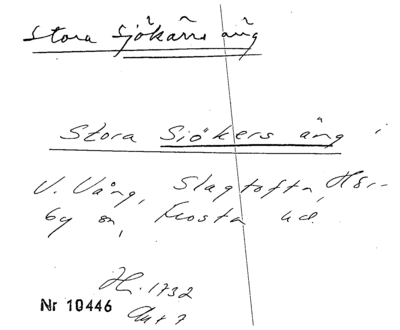 Stora Sjökärrs äng
Stora Siökers äng i
V. Vång, Slagtofta, Hör-
by sn, Frosta hd.
H. 1732
Akt 7
Nr 10446